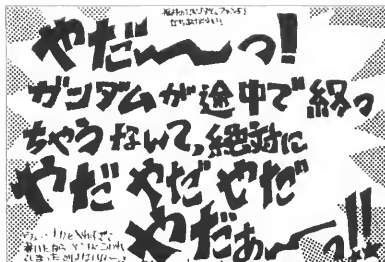 やだ〜〜っ!
ガンダムが途中で終っ
ちゃうなんて、絶対に
やだ やだ やだ
やだぁ〜〜っ!!